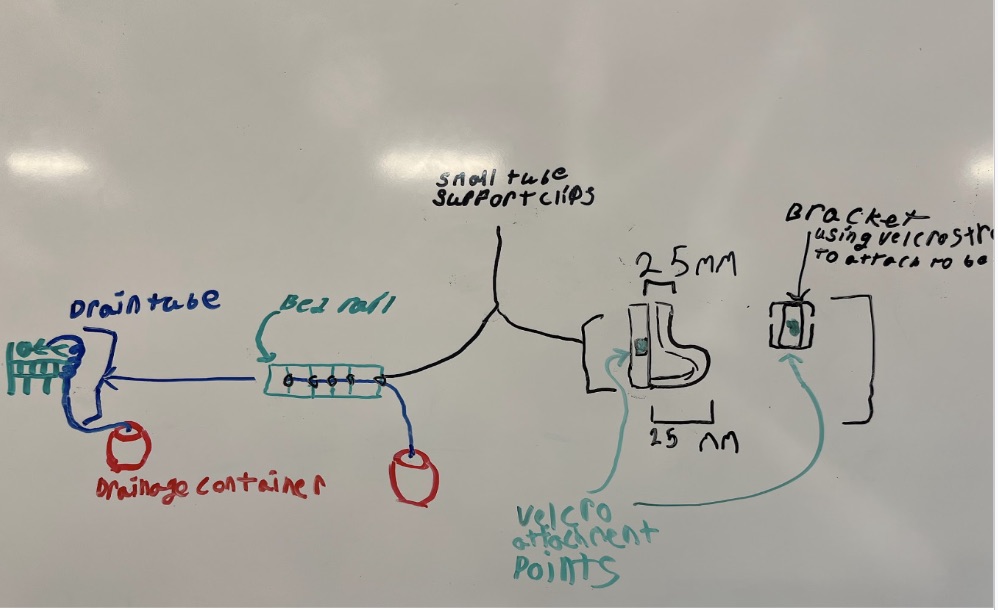 small tube
support clips
Bracket
using velcro str
to attach to be
25 mm
Drain tube
Bed rail
25 mm
Drainage container
velcro
attachment
points